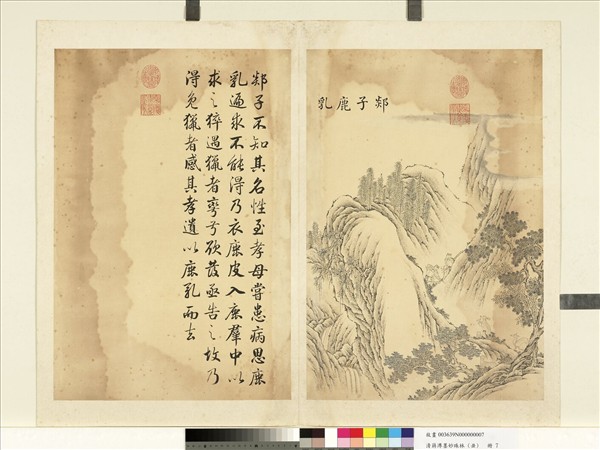 郯子鹿乳
郯子不知其名性至孝母嘗患病思鹿
乳遍求不能得乃衣鹿皮入鹿羣中以
求之猝遇獵者彎弓欲發亟告之故乃
得免獵者感其孝遺以鹿乳而去
故畫 003659N000000007
墨妙珠林 冊 7